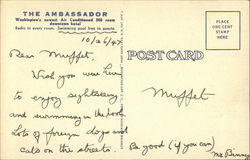 THE AMBASSADOR
Washington's newest Air Conditioned 500 room
downtown hotel
Radio in every room. Swimming pool free to guests.
10/26/47
PLACE
ONE CENT
STAMP
HERE
POST CARD
Dear Muffet,
Wish you were here
to enjoy sightseeing
and swimming in the pool.
Lots of foreign dogs and
cats on the streets.
Muffet
Be good (if you can)